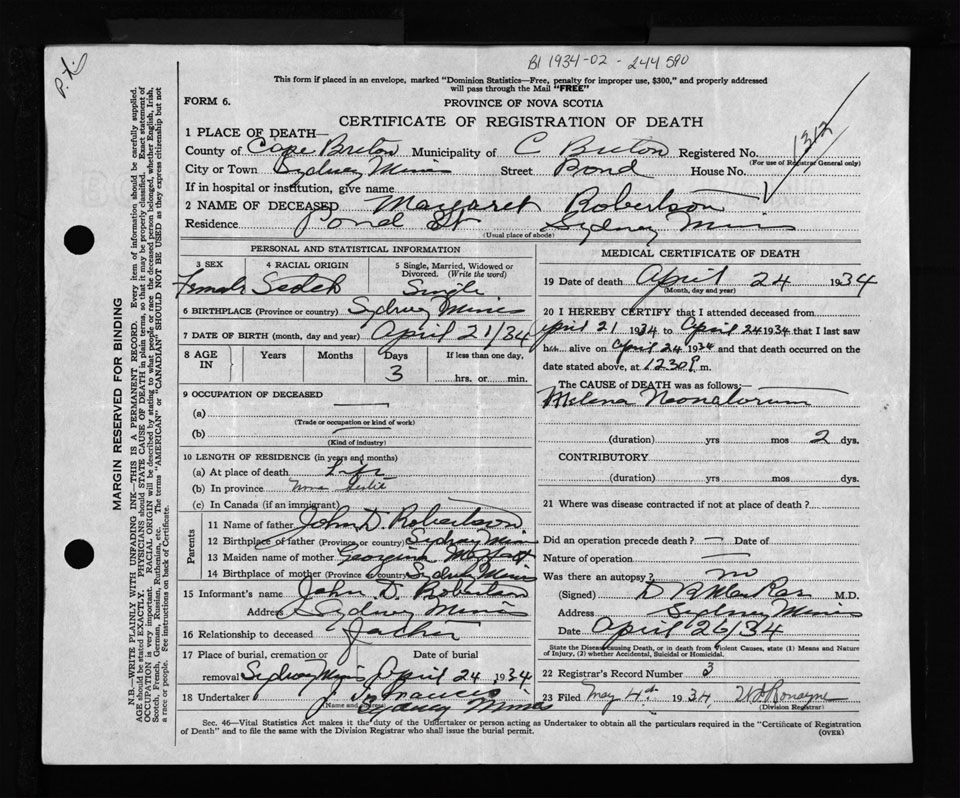 P.X.
B1 1934-02 - 244590
This form if placed in an envelope, marked "Dominion Statistics—Free, penalty for improper use, $300," and properly addressed
will pass through the Mail "FREE"
FORM 6.
PROVINCE OF NOVA SCOTIA
CERTIFICATE OF REGISTRATION OF DEATH
1312
1 PLACE OF DEATH—
County of Cape Breton Municipality of C Breton Registered No.
(For use of Registrar General only)
City or Town Sydney Mines Street Pond House No.
If in hospital or institution, give name
2 NAME OF DECEASED Margaret Robertson
Residence Pond St Sydney Mines
(Usual place of abode)
PERSONAL AND STATISTICAL INFORMATION
3 SEX 4 RACIAL ORIGIN 5 Single, Married, Widowed or
Divorced. (Write the word)
Female Scotch Single
6 BIRTHPLACE (Province or country) Sydney Mines
7 DATE OF BIRTH (month, day and year) April 21/34
8 AGE IN Years Months Days If less than one day,
3 hrs. or min.
9 OCCUPATION OF DECEASED
(a)
(Trade or occupation or kind of work)
(b)
(Kind of industry)
10 LENGTH OF RESIDENCE (in years and months)
(a) At place of death Life
(b) In province Nova Scotia
(c) In Canada (if an immigrant)
Parents
11 Name of father John D. Robertson
12 Birthplace of father (Province or country) Sydney Mines
13 Maiden name of mother Georgina Moffatt
14 Birthplace of mother (Province or country) Sydney Mines
15 Informant's name John D. Robertson
Address Sydney Mines
16 Relationship to deceased Father
17 Place of burial, cremation or Date of burial
removal Sydney Mines April 24 1934
18 Undertaker J. J. Francis
(Name and address)
Sydney Mines
MEDICAL CERTIFICATE OF DEATH
19 Date of death April 24 1934
(Month, day and year)
20 I HEREBY CERTIFY that I attended deceased from
April 21 1934 to April 24 1934 that I last saw
h alive on April 24 1934 and that death occurred on the
date stated above, at 12 30 P. m.
The CAUSE of DEATH was as follows:—
Melena Neonatorum
(duration) yrs mos 2 dys.
CONTRIBUTORY
(duration) yrs mos dys.
21 Where was disease contracted if not at place of death?
Did an operation precede death? — Date of
Nature of operation —
Was there an autopsy? no
(Signed) M.D.
Address Sydney Mines
Date April 26/34
State the Disease causing Death, or in death from Violent Causes, state (1) Means and Nature
of Injury, (2) whether Accidental, Suicidal or Homicidal.
22 Registrar's Record Number 3
23 Filed May 4th 1934 Ronayne
(Division Registrar)
Sec. 46—Vital Statistics Act makes it the duty of the Undertaker or person acting as Undertaker to obtain all the particulars required in the "Certificate of Registration
of Death" and to file the same with the Division Registrar who shall issue the burial permit. (OVER)
MARGIN RESERVED FOR BINDING
N.B.—WRITE PLAINLY WITH UNFADING INK—THIS IS A PERMANENT RECORD. Every item of information should be carefully supplied.
AGE should be stated EXACTLY. PHYSICIANS should STATE CAUSE OF DEATH in plain terms, so that it may be properly classified. Exact statement of
OCCUPATION is very important. RACIAL ORIGIN will be described by stating to what people or race the deceased person belonged, whether English, Irish,
Scotch, French, German, Russian, Ruthenian, etc. The terms "AMERICAN" or "CANADIAN" SHOULD NOT BE USED as they express citizenship but not
a race or people. See instructions on back of Certificate.